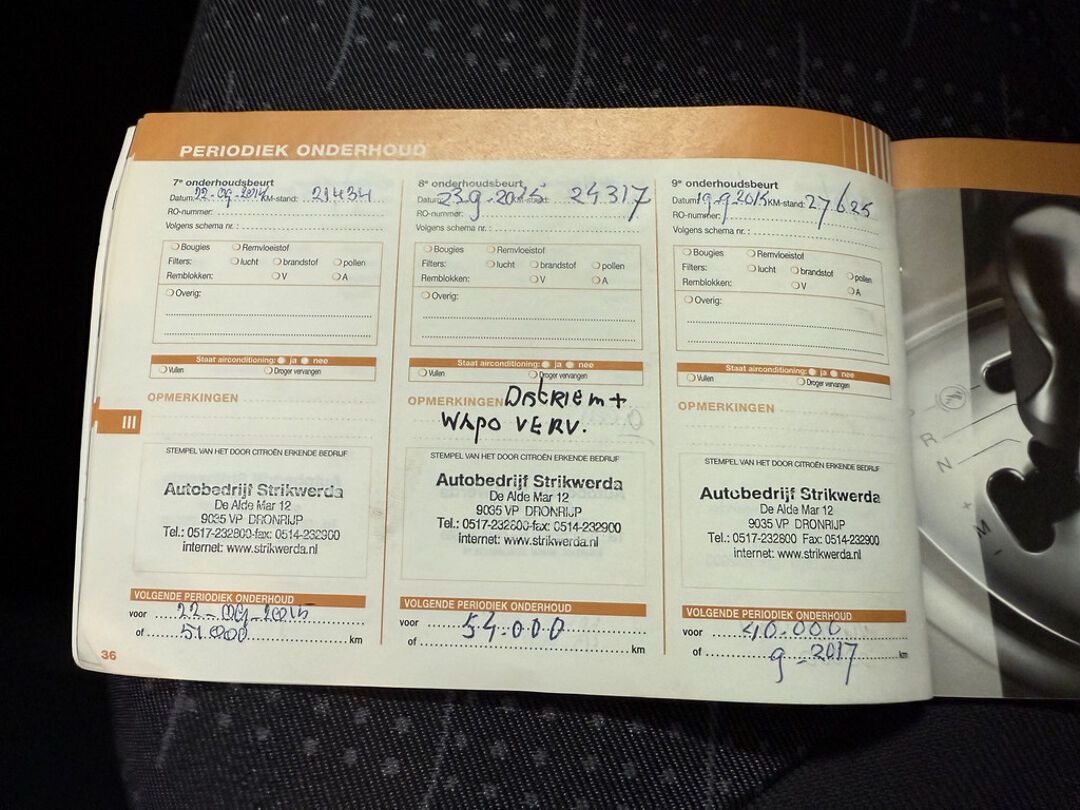 PERIODIEK ONDERHOUD
7e onderhoudsbeurt
Datum: 22-09-2014 KM-stand: 21434
RO-nummer:
Volgens schema nr. :
Bougies Remvloeistof
Filters: lucht brandstof pollen
Remblokken: V A
Overig:
Staat airconditioning: ja nee
Vullen Droger vervangen
OPMERKINGEN
STEMPEL VAN HET DOOR CITROËN ERKENDE BEDRIJF
Autobedrijf Strikwerda
De Alde Mar 12
9035 VP DRONRIJP
Tel.: 0517-232800-fax: 0514-232900
internet: www.strikwerda.nl
VOLGENDE PERIODIEK ONDERHOUD
voor 22-09-2015
of 51.000 km
8e onderhoudsbeurt
Datum: 23-9-2015 KM-stand: 24317
RO-nummer:
Volgens schema nr. :
Bougies Remvloeistof
Filters: lucht brandstof pollen
Remblokken: V A
Overig:
Staat airconditioning: ja nee
Vullen Droger vervangen
OPMERKINGEN Distriem +
WAPO VERV.
STEMPEL VAN HET DOOR CITROËN ERKENDE BEDRIJF
Autobedrijf Strikwerda
De Alde Mar 12
9035 VP DRONRIJP
Tel.: 0517-232800-fax: 0514-232900
internet: www.strikwerda.nl
VOLGENDE PERIODIEK ONDERHOUD
voor 54.000
of km
9e onderhoudsbeurt
Datum: 19-9-2015 KM-stand: 27625
RO-nummer:
Volgens schema nr. :
Bougies Remvloeistof
Filters: lucht brandstof pollen
Remblokken: V A
Overig:
Staat airconditioning: ja nee
Vullen Droger vervangen
OPMERKINGEN
STEMPEL VAN HET DOOR CITROËN ERKENDE BEDRIJF
Autobedrijf Strikwerda
De Alde Mar 12
9035 VP DRONRIJP
Tel.: 0517-232800 Fax: 0514-232900
internet: www.strikwerda.nl
VOLGENDE PERIODIEK ONDERHOUD
voor 40.000
of 9-2017 km
III
36
R
N
+
M
-